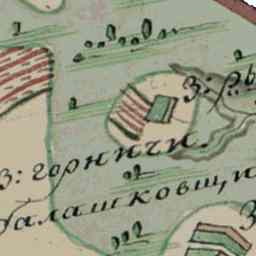 З: р.
З: горничи.
балашковщи
З